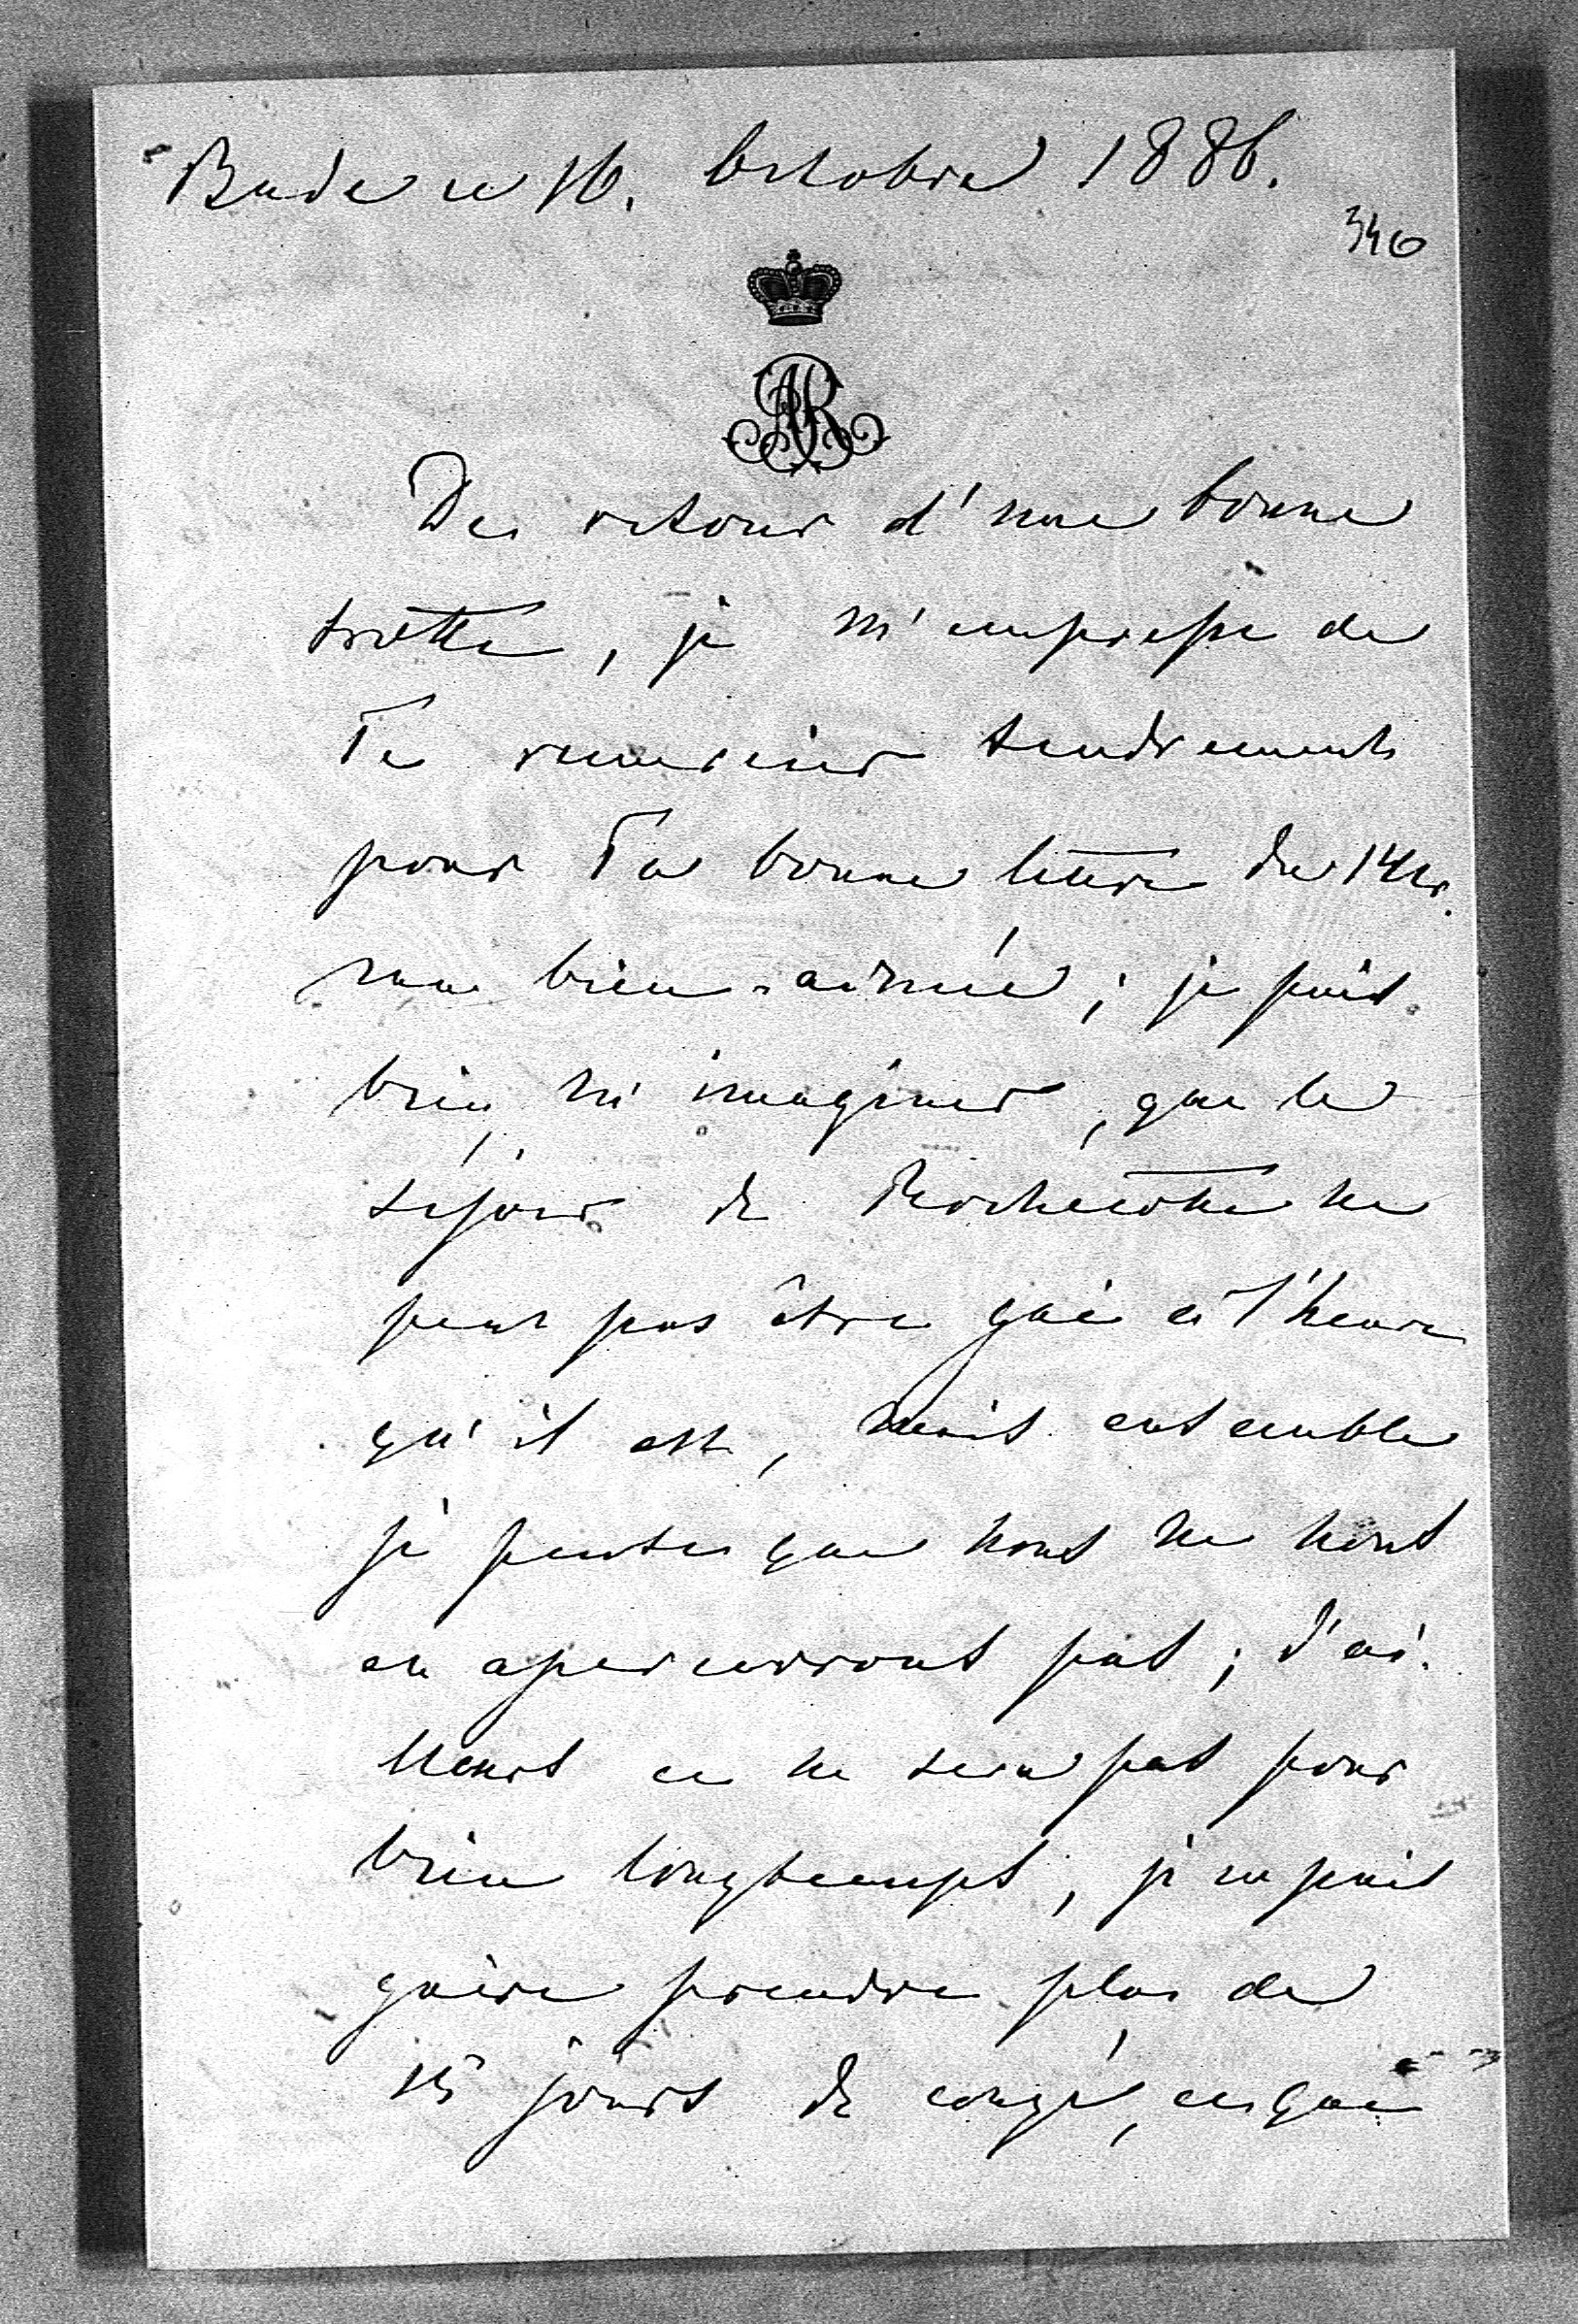 Bade ce 16. Octobre 1886.
340
AR
De retour d'une bonne
trotte, je m'empresse de
Te remercier tendrement
pour Ta bonne lettre du 14 cr.
ma bien-aimée; je puis
bien m'imaginer, que le
séjour de Rochecotte ne
peut pas être gai à l'heure
qu'il est, mais ensemble
je pense que nous ne nous
en apercevrons pas; d'ai-
lleurs ce ne sera pas pour
bien longtemps, je ne puis
guère prendre plus de
15 jours de congé, ce qui